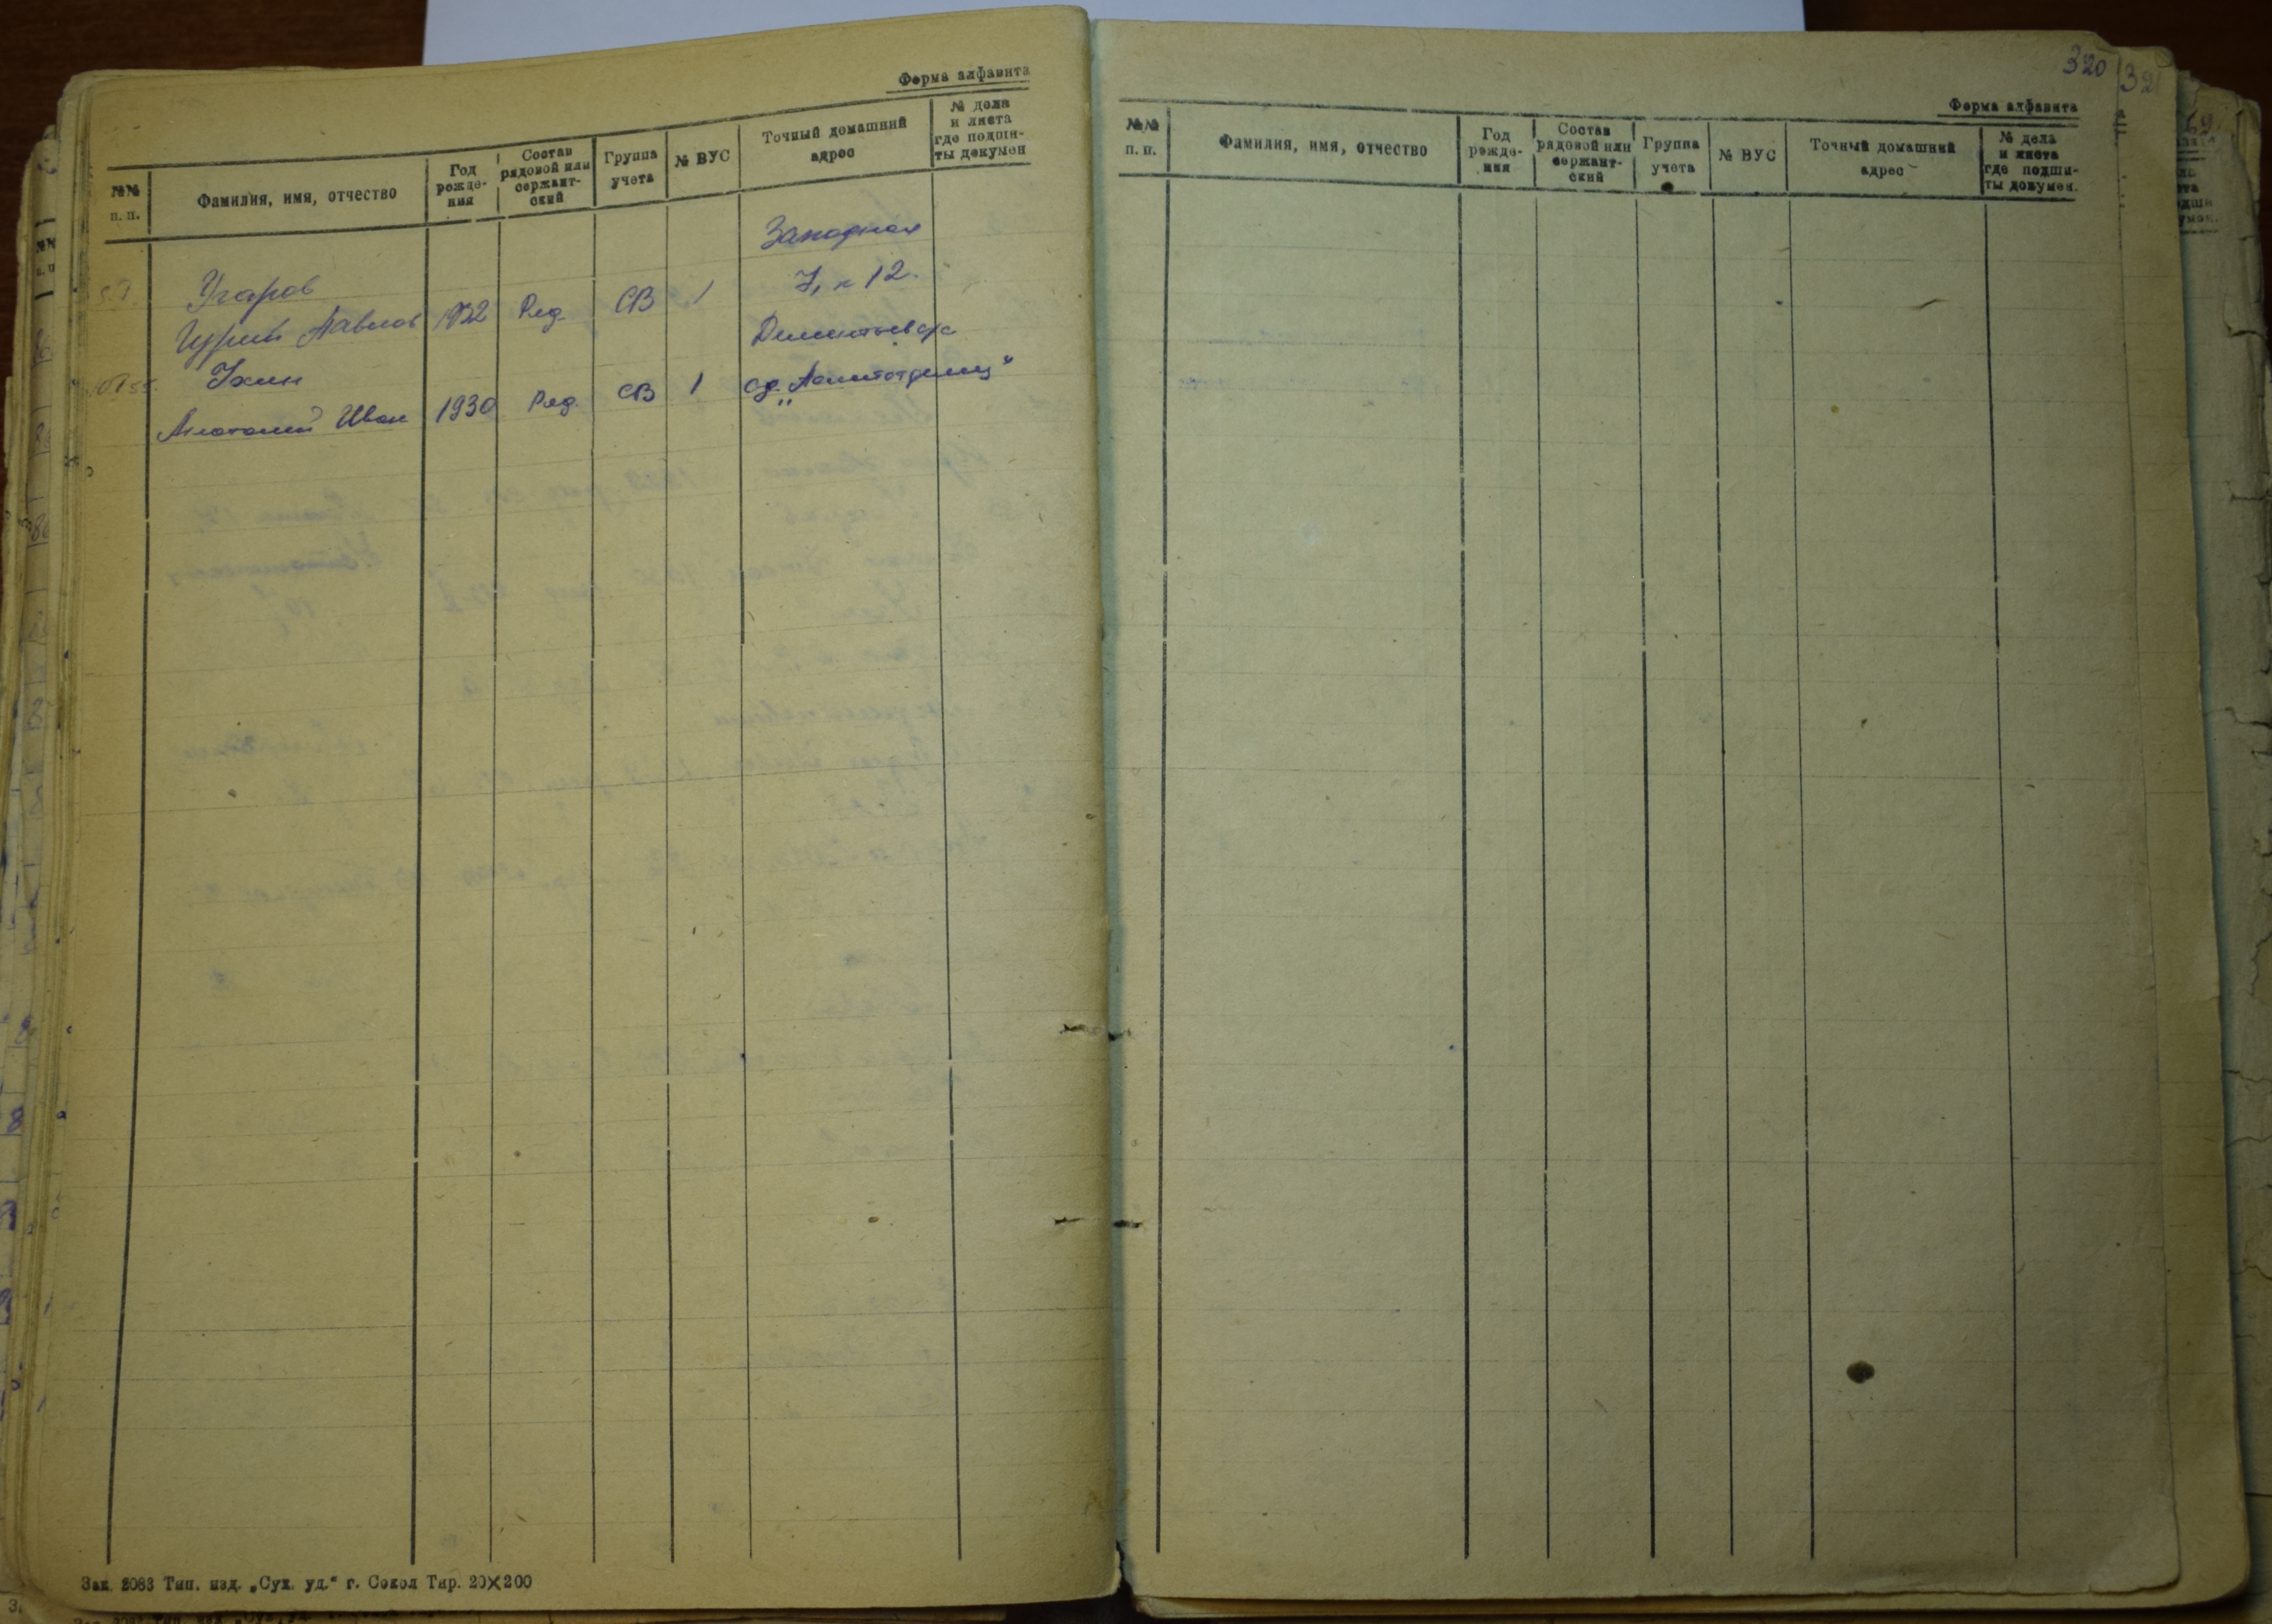 Форма алфавита
№№ п. п.
Фамилия, имя, отчество
Год рожде-
ния
Состав
рядовой или
сержант-
ский
Группа
учета
№ ВУС
Точный домашний
адрес
№ дела
и листа
где подши-
ты докумен
Западная
Угаров 7, к 12.
Павлов 1932 Ряд. СВ 1
Ухин
Анатолий Иван 1930 Ряд. СВ 1
Зак. 2083 Тип. изд. „Сух. уд.“ г. Сокол Тир. 20×200
320
Форма алфавита
№№
п. п.
Фамилия, имя, отчество
Год
рожде-
ния
Состав
рядовой или
сержант-
ский
Группа
учета
№ ВУС
Точный домашний
адрес
№ дела
и листа
где подши-
ты докумен.